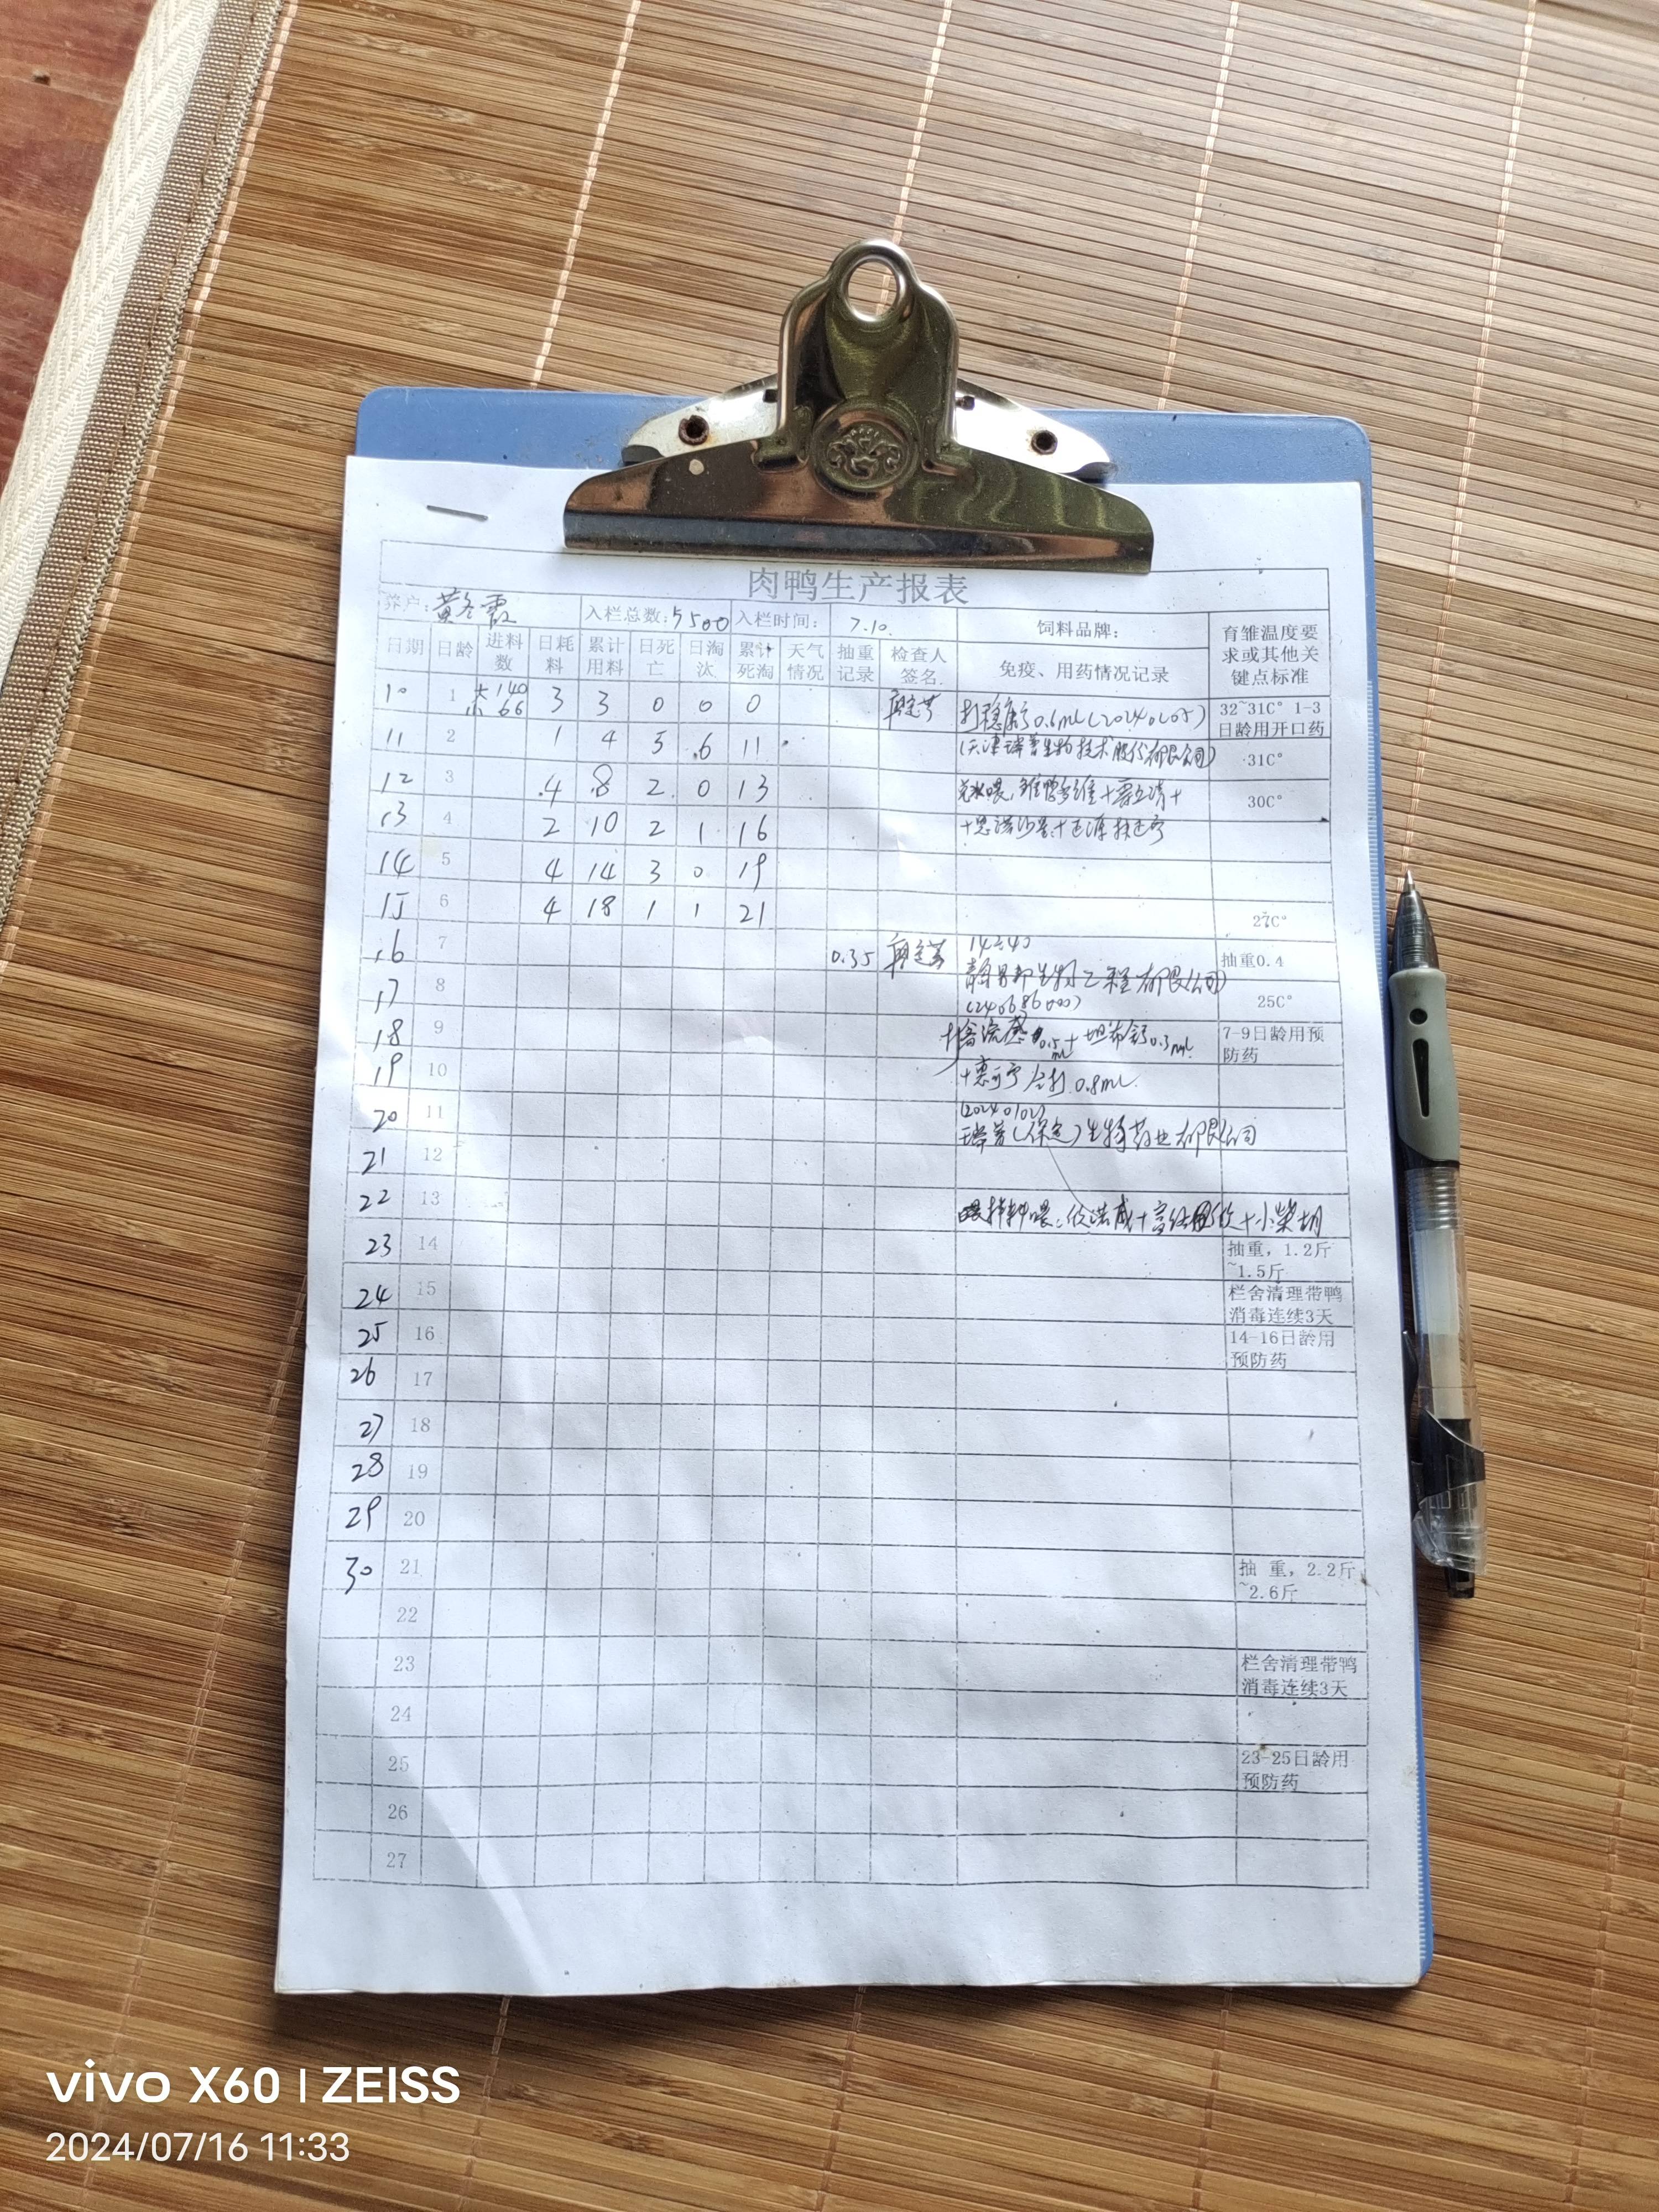 肉鸭生产报表
养户: 黄冬霞 入栏总数: 5500 入栏时间: 7.10. 饲料品牌: 育雏温度要求或其他关键点标准
日期 日龄 进料数 日耗料 累计用料 日死亡 日淘汰 累计死淘 天气情况 抽重记录 检查人签名 免疫、用药情况记录
10 1 大140 小66 3 3 0 0 0 打 0.6mL(20240105) 32~31C° 1-3日龄用开口药
11 2 1 4 5 6 11 (天津瑞普生物技术股份有限公司) 31C°
12 3 4 8 2 0 13 30C°
13 4 2 10 2 1 16
14 5 4 14 3 0 19
15 6 4 18 1 1 21 27C°
16 7 0.35 抽重0.4
生物工程有限公司
17 8 25C°
18 9 禽流感 0.5mL + 0.3mL 7-9日龄用预防药
19 10 合打 0.8mL
20 11 瑞普(保定)生物药业有限公司
21 12
22 13 拌料喂: +小柴胡
23 14 抽重，1.2斤~1.5斤
24 15 栏舍清理带鸭消毒连续3天
25 16 14-16日龄用预防药
26 17
27 18
28 19
29 20
30 21 抽 重，2.2斤~2.6斤
22
23 栏舍清理带鸭消毒连续3天
24
25 23-25日龄用预防药
26
27
vivo X60 | ZEISS
2024/07/16 11:33